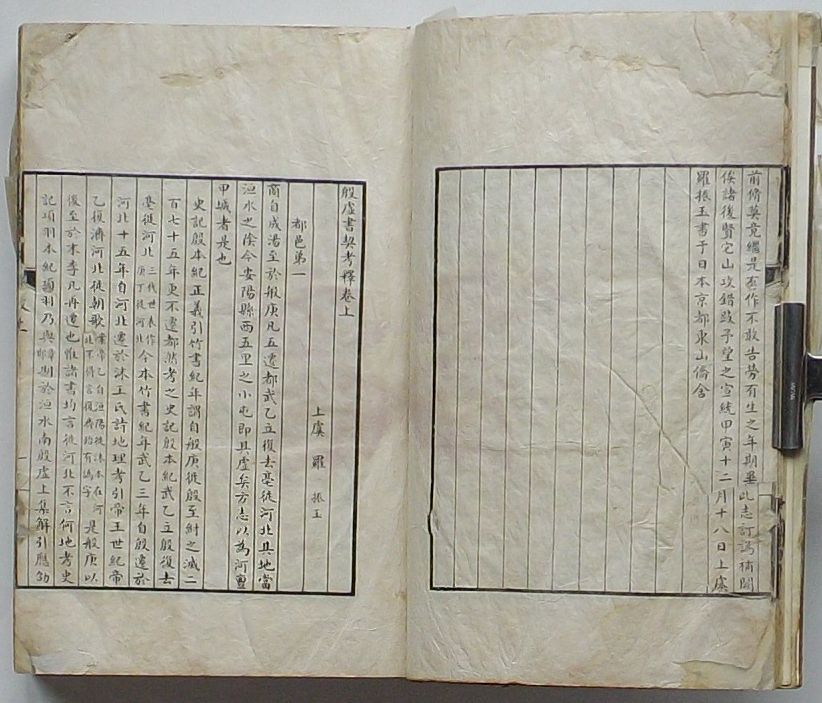 前脩莫竟繼是有作不敢告勞有生之年期畢此志訂譌補闕
俟諸後賢它山攻錯跂予望之宣統甲寅十二月十八日上虞
羅振玉書于日本京都東山僑舍
殷虛書契考釋卷上
上虞 羅 振玉
都邑第一
商自成湯至於般庚凡五遷都武乙立復去亳徙河北其地當
洹水之陰今安陽縣西五里之小屯即其虛矣方志以為河亶
甲城者是也
史記殷本紀正義引竹書紀年謂自般庚徙殷至紂之滅二
百七十五年更不遷都然考之史記殷本紀武乙立殷復去
亳徙河北三代世表作庚丁徙河北今本竹書紀年武乙三年自殷遷於
河北十五年自河北遷於沬王氏詩地理考引帝王世紀帝
乙復濟河北徙朝歌是般庚以
後至於末季凡再遷也惟諸書均言徙河北不言何地考史
記項羽本紀項羽乃與章邯期於洹水南殷虛上集解引應劭